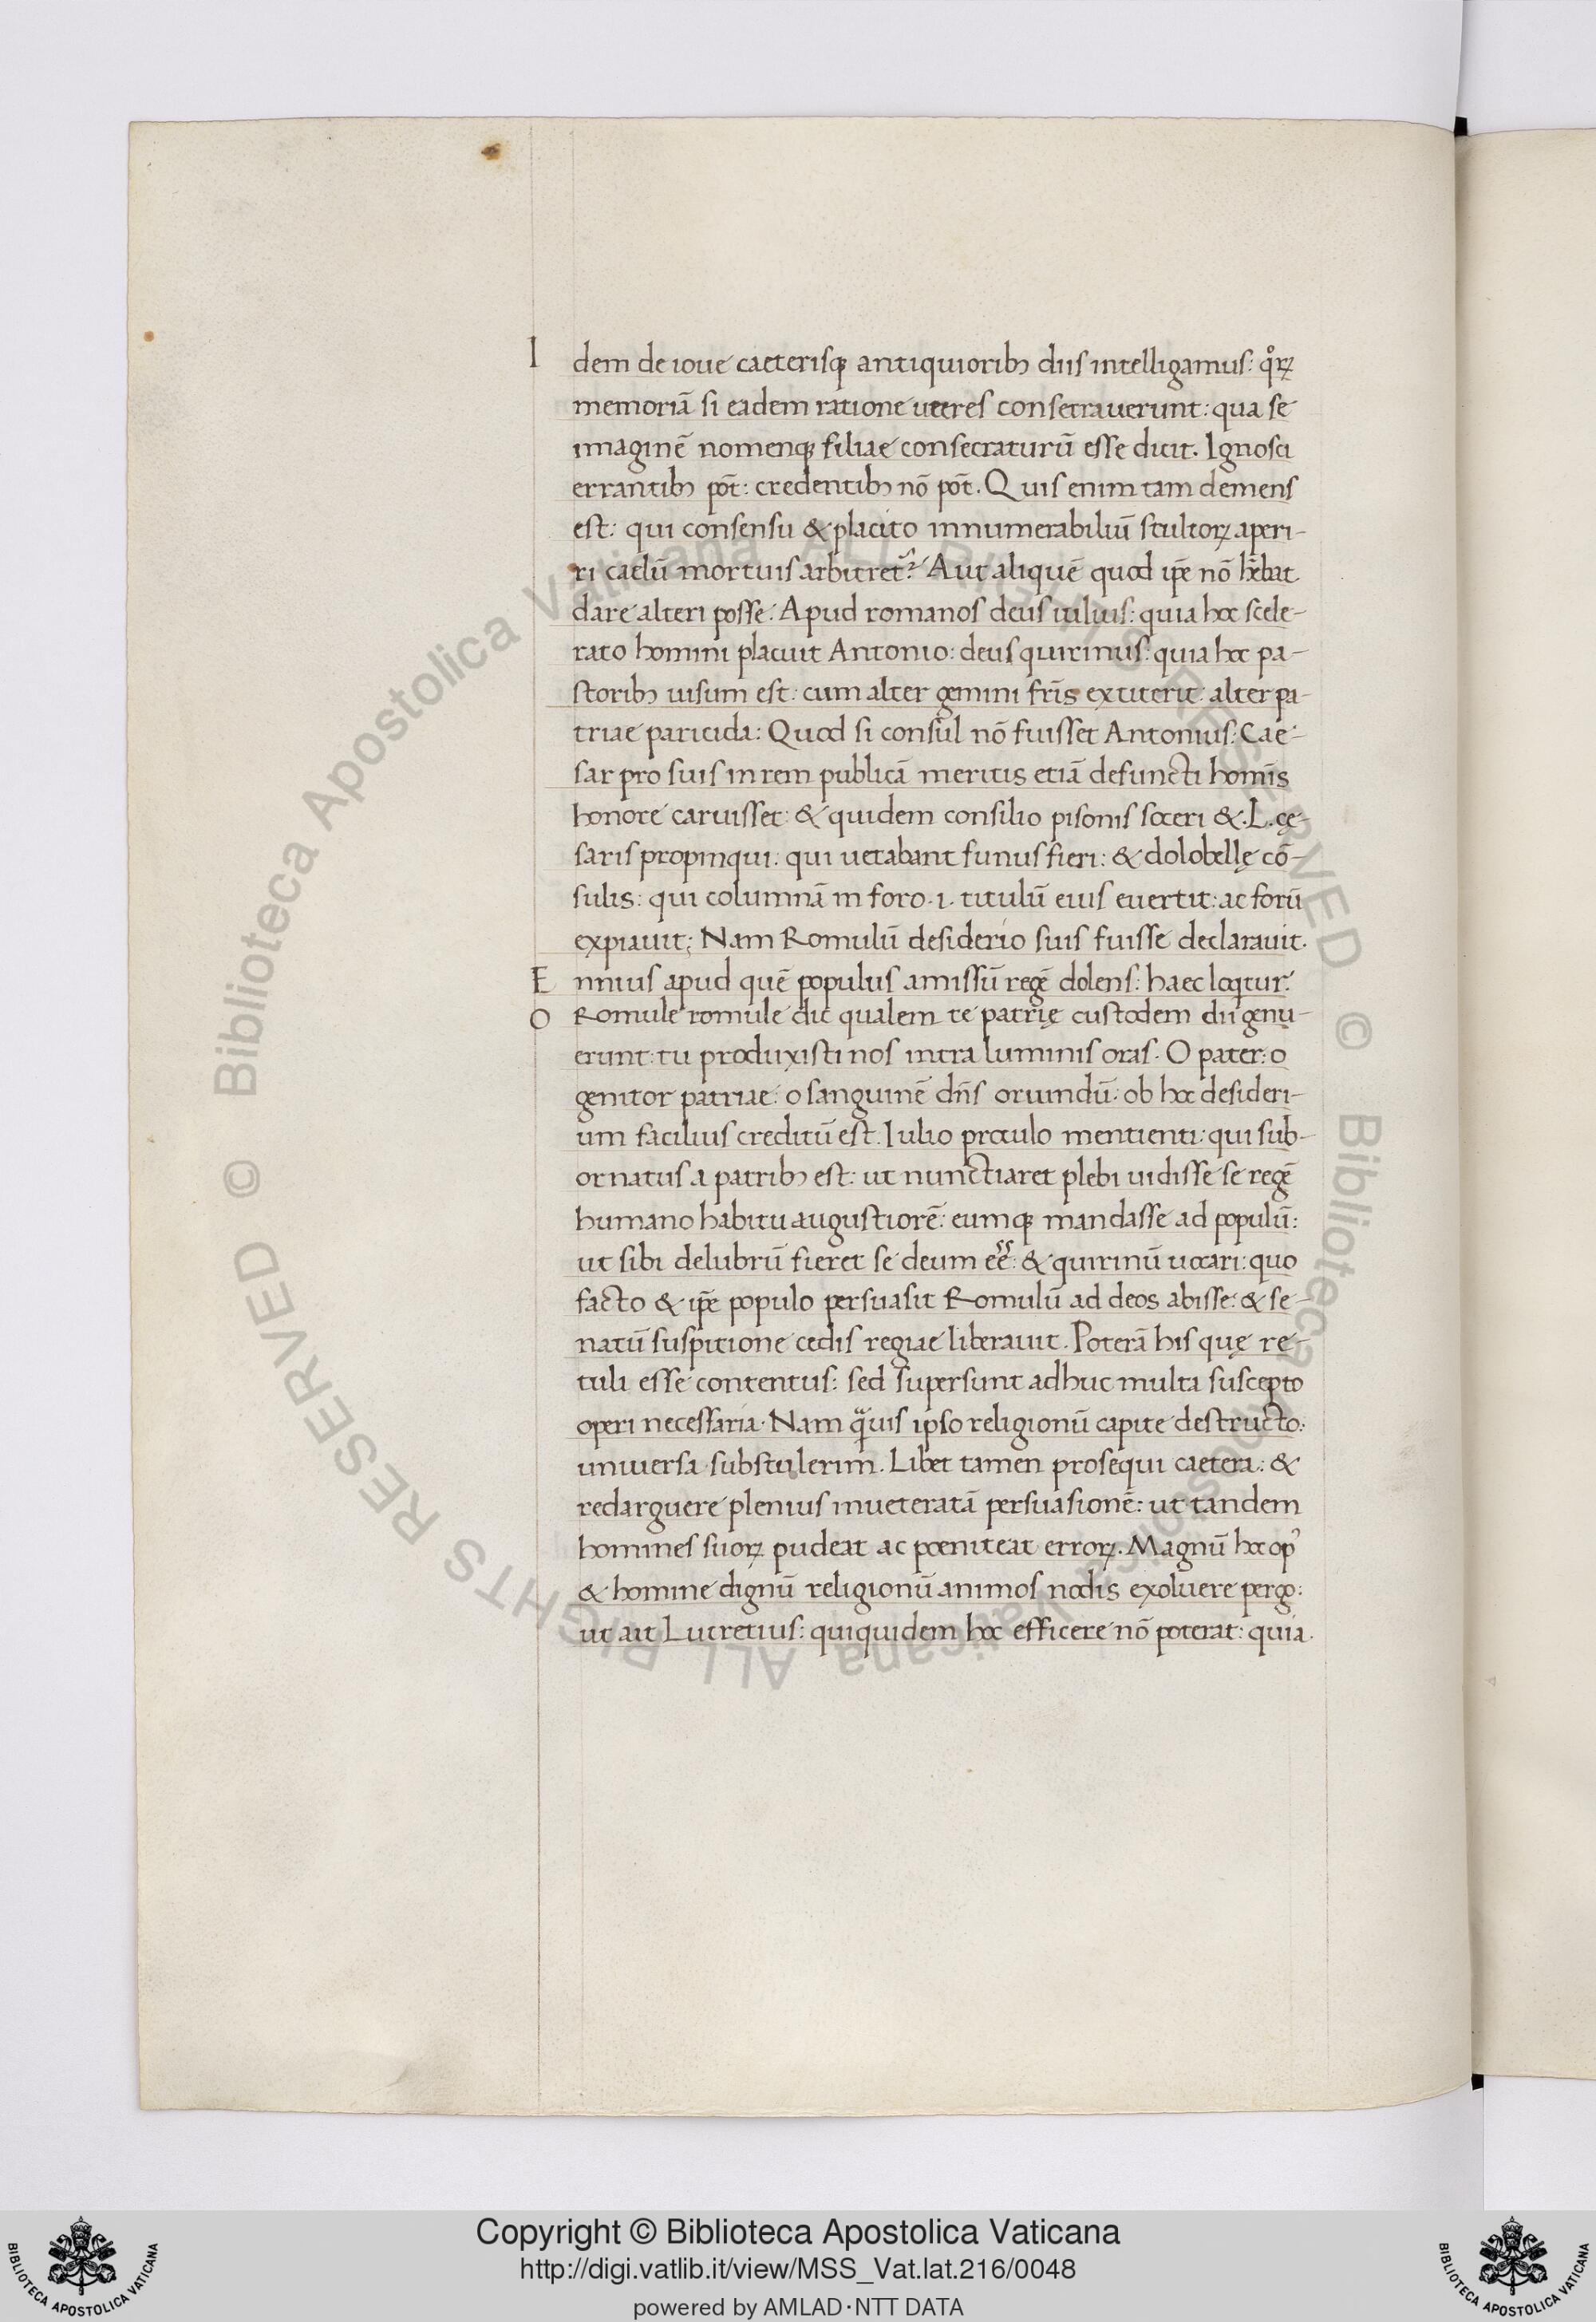 I dem de ioue caeterisqꝫ antiquioribꝫ diis intelligamus: qͦꝝ
memoriā si eadem ratione ueteres consecrauerunt: qua se
imaginē nomenqꝫ filiae consecraturū esse dicit. Ignosci
errantibꝫ pōt: credentibꝫ nō pōt. Quis enim tam demens
est: qui consensu & placito innumerabiliū stultoꝝ aperi-
ri caelū mortuis arbitret᷑? Aut aliquē quod ip̄e nō hēbat
dare alteri posse: Apud romanos deus iulius: quia hoc scele-
rato homini placuit Antonio: deus quirinus: quia hoc pa-
storibꝫ uisum est: cum alter gemini fr̄is extiterit: alter pa-
triae paricida: Quod si consul nō fuisset Antonius: Cae-
sar pro suis in rem publicā meritis etiā defuncti homīs
honore caruisset: & quidem consilio pisonis soceri & .L. cę-
saris propinqui: qui uetabant funus fieri: & dolobellę cō-
sulis: qui columnā in foro .i. titulū eius euertit: ac forū
expiauit; Nam Romulū desiderio suis fuisse declarauit.
E nnius apud quē populus amissū regē dolens: haec loqitur.
O Romule romule dic qualem te patrię custodem dii genu-
erunt: tu produxisti nos intra luminis oras. O pater: o
genitor patriae: o sanguinē dn̄s oriundū: ob hoc desideri-
um facilius creditū est. Iulio proculo mentienti: qui sub-
ornatus a patribꝫ est: ut nunctiaret plebi uidisse se regē
humano habitu augustiorē: eumqꝫ mandasse ad populū:
ut sibi delubrū fieret se deum eē: & quirinū uocari: quo
facto & ip̄e populo persuasit Romulū ad deos abisse: & se-
natū suspitione cedis regiae liberauit. Poterā his quę re-
tuli esse contentus: sed supersunt adhuc multa suscepto
operi necessaria. Nam q̄uis ipso religionū capite destructo:
uniuersa substulerim. Libet tamen prosequi caetera: &
redarguere plenius inueteratā persuasionē: ut tandem
homines suoꝝ pudeat ac poeniteat erroꝝ. Magnū hoc opꝰ
& homine dignū religionū animos nodis exoluere pergo:
ut ait Lucretius: quiquidem hoc efficere nō poterat: quia
© Biblioteca Apostolica Vaticana ALL RIGHTS RESERVED © Biblioteca Apostolica Vaticana ALL RIGHTS RESERVED
Copyright © Biblioteca Apostolica Vaticana
http://digi.vatlib.it/view/MSS_Vat.lat.216/0048
powered by AMLAD·NTT DATA
BIBLIOTECA APOSTOLICA VATICANA
BIBLIOTECA APOSTOLICA VATICANA